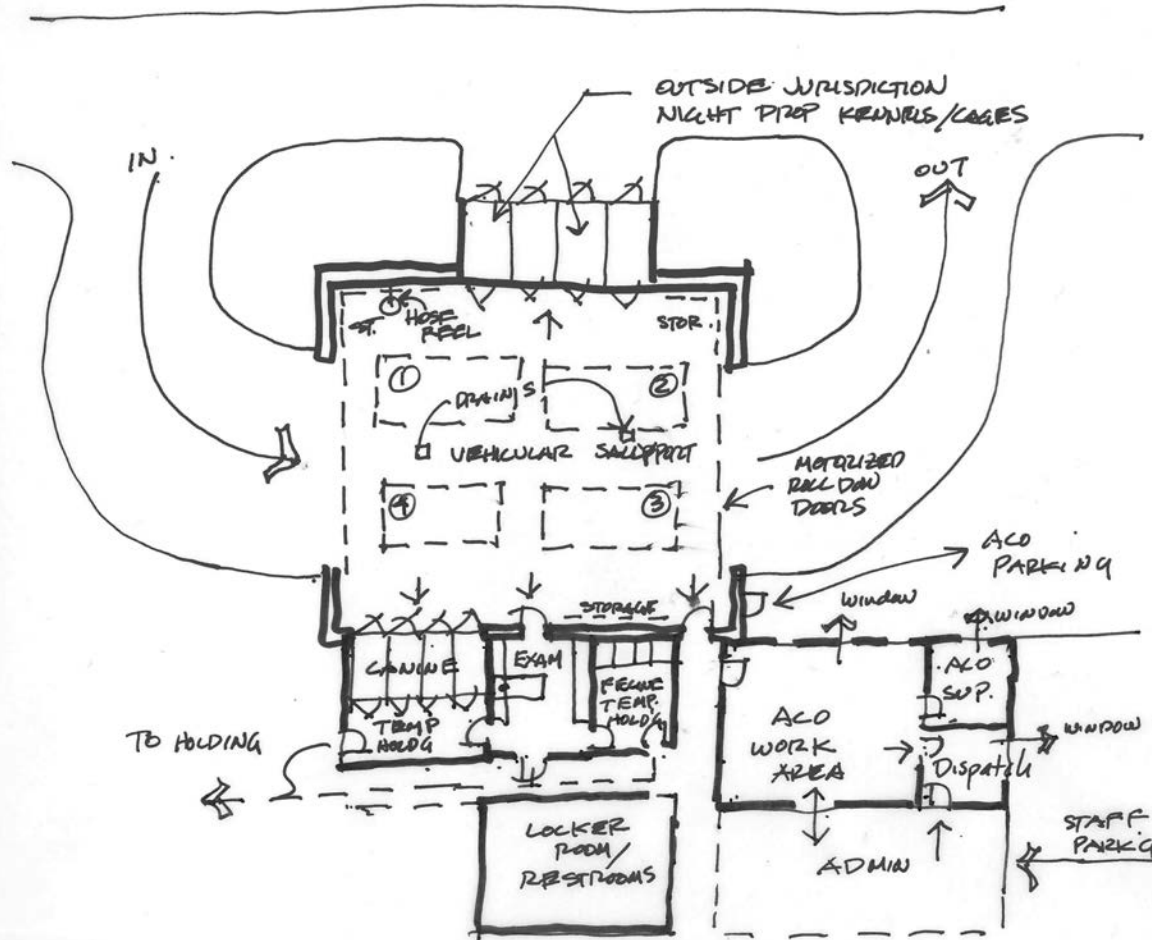 OUTSIDE JURISDICTION
NIGHT DROP KENNELS/CAGES
IN.
OUT
ST.
HOSE
REEL
STOR.
①
②
DRAINS
VEHICULAR SALLYPORT
④
③
MOTORIZED
ROLL DOWN
DOORS
ACO
PARKING
STORAGE
WINDOW
WINDOW
CANINE
TEMP
HOLDG
EXAM
FELINE
TEMP.
HOLDG
ACO
SUP.
ACO
WORK
AREA
WINDOW
Dispatch
TO HOLDING
LOCKER
ROOM/
RESTROOMS
ADMIN
STAFF
PARKG